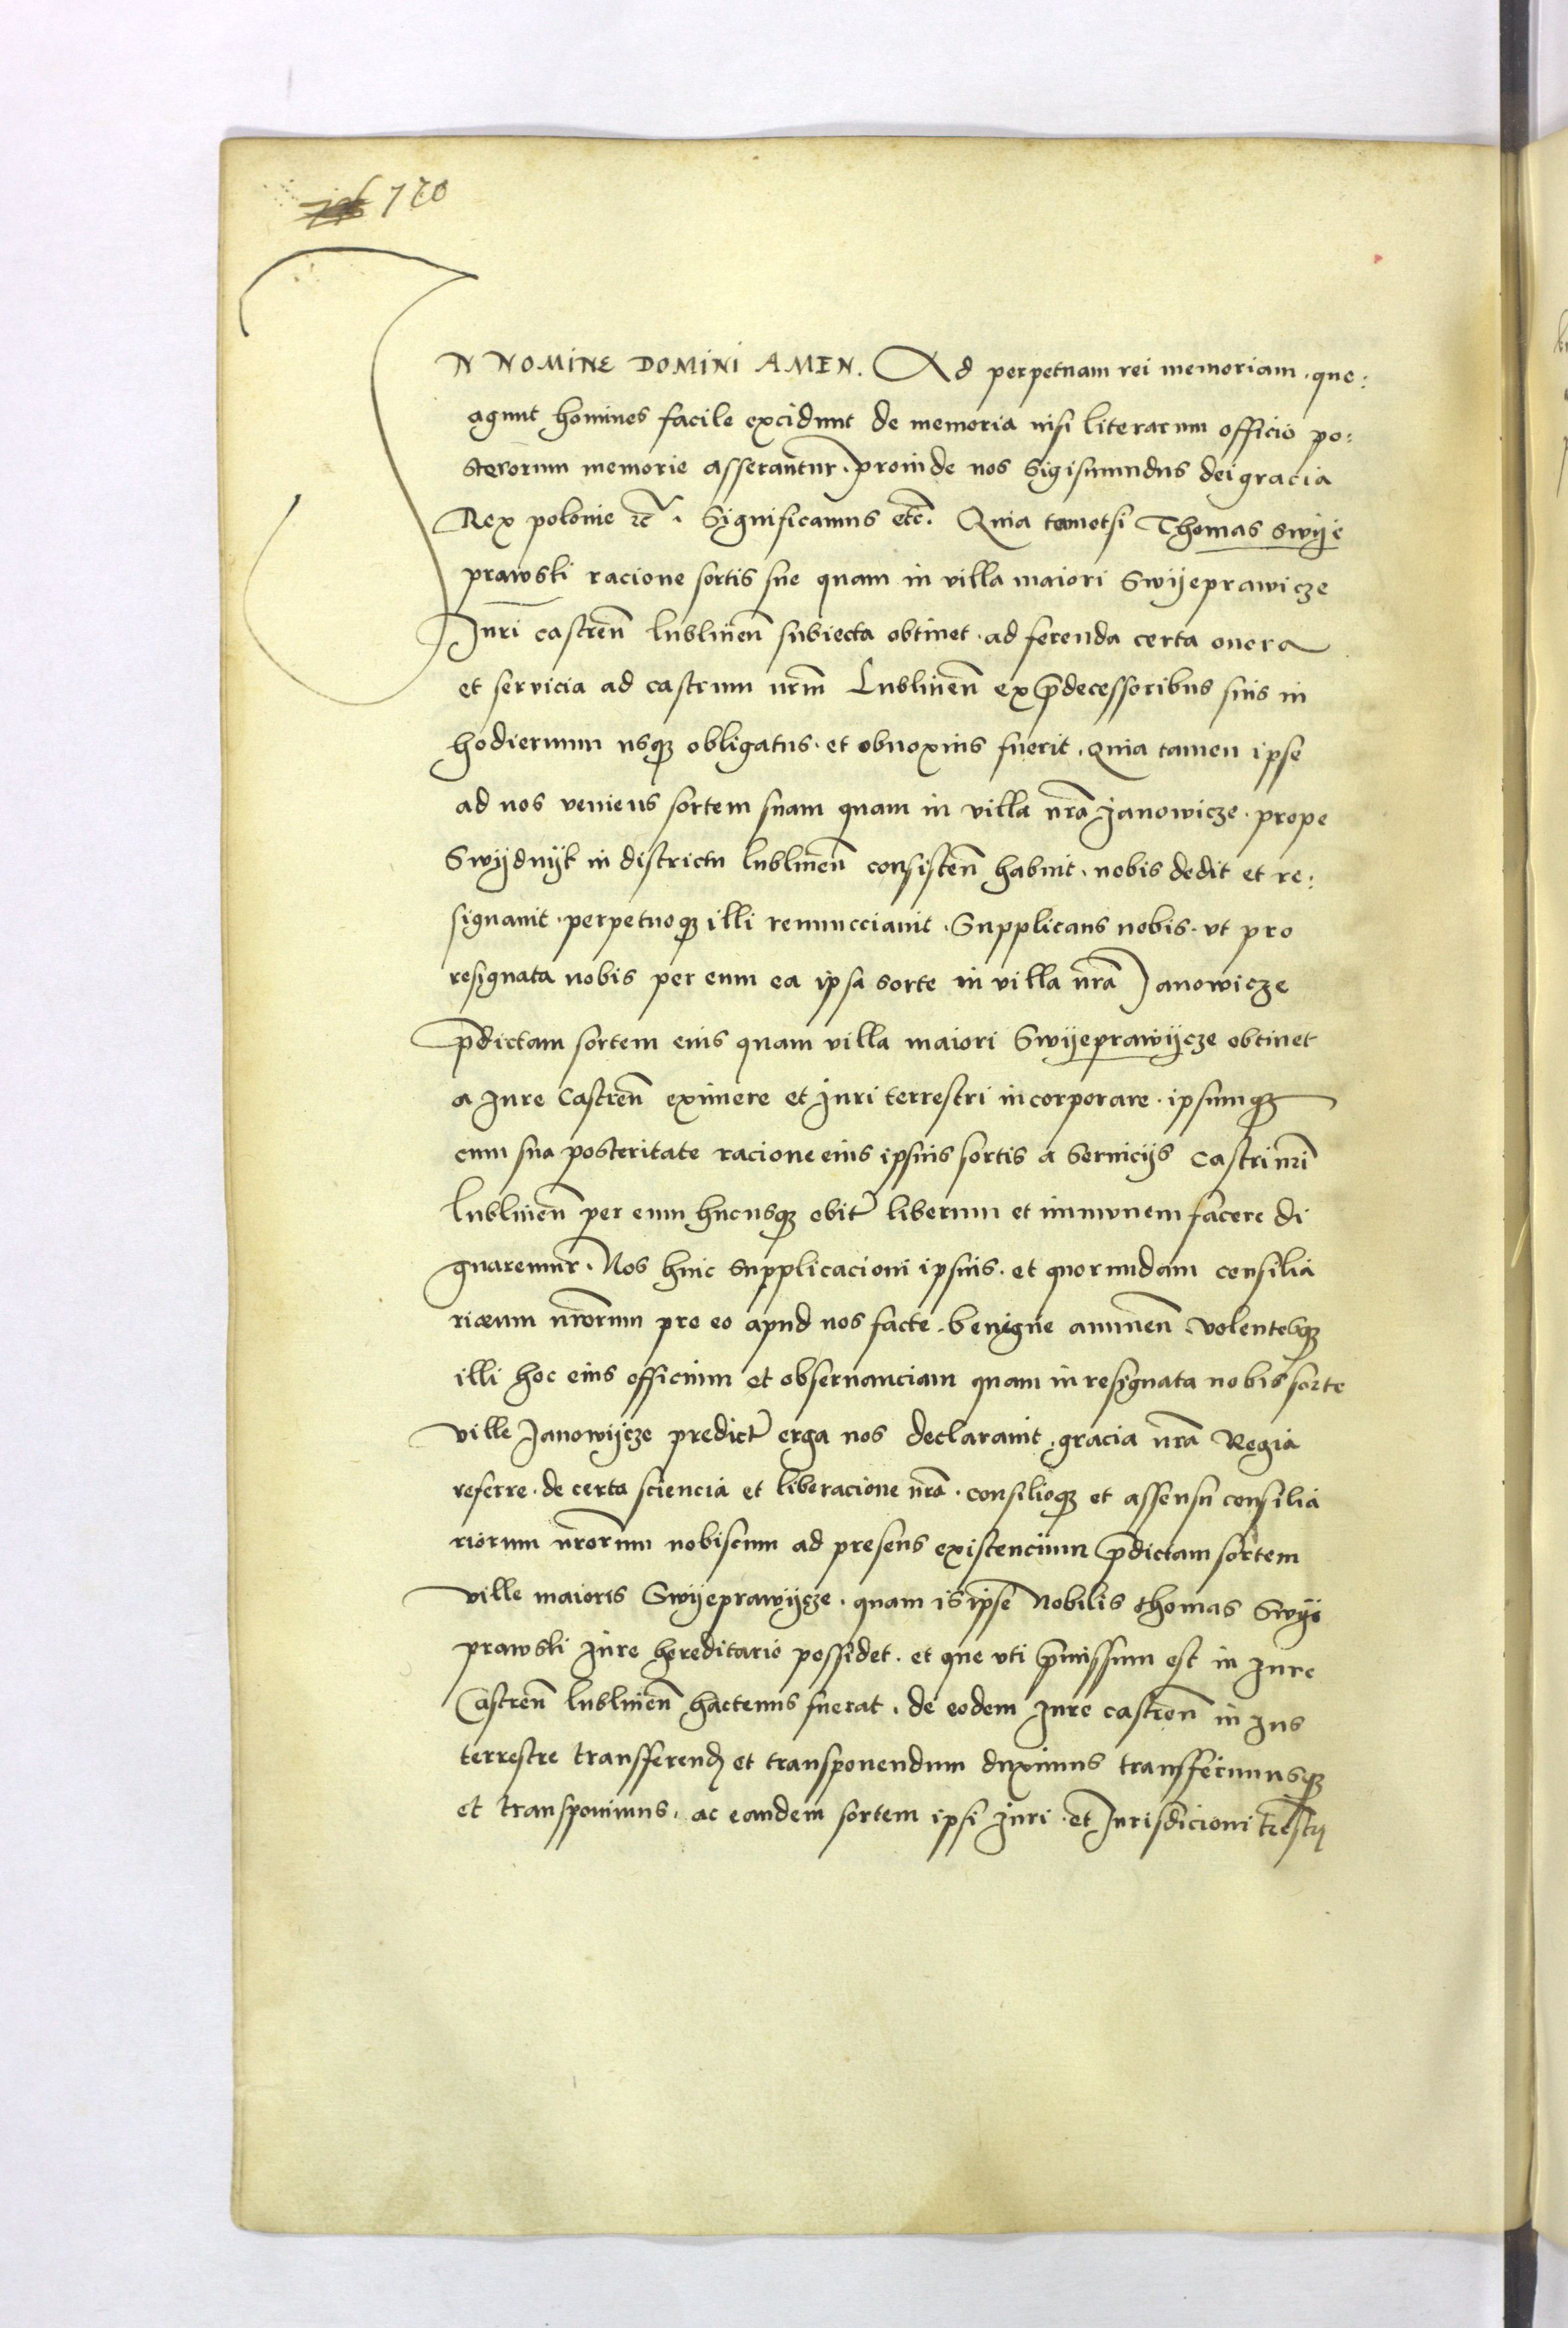 170
IN NOMINE DOMINI AMEN. Ad perpetuam rei memoriam. que:
agunt homines facile excidunt de memoria nisi literarum officio po:
sterorum memorie asserantur. proinde nos Sigismundus dei gracia
Rex polonie etc̃. Significamus etc̃. Quia tametsi Thomas Swije
prawski racione sortis sue quam in villa maiori Swijeprawicze
Juri castreñ lublineñ subiecta obtinet. ad ferenda certa onera
et servicia ad castrum nr̃m Lublineñ ex p̃decessoribus suis in
hodiernum usqꝫ obligatus. et obnoxius fuerit. Quia tamen ipse
ad nos veniens sortem suam quam in villa nr̃a Janowicze. prope
Swijdnijk in districtu lublineñ consisteñ habuit. nobis dedit et re:
signauit. perpetuoqꝫ illi renuncciauit. Supplicans nobis. vt pro
resignata nobis per eum ea ipsa sorte in villa nr̃a Janowicze
p̃dictam sortem eius quam villa maiori Swijeprawijcze obtinet
a Jure Castreñ eximere et Juri terrestri incorporare. ipsumqꝫ
cum sua posteritate racione eius ipsius sortis a seruicijs Castri nr̃i
lublineñ per eum hucusqꝫ obit̃ liberum et immunem facere di
gnaremur. Nos huic supplicacioni ipsius. et quorundam consilia
riorum nr̃orum pro eo apud nos facte. benigne annueñ volentesqꝫ
illi hoc eius officium et obseruanciam quam in resignata nobis sorte
ville Janowijcze predict̃ erga nos declarauit. gracia nr̃a Regia
referre. de certa sciencia et liberacione nr̃a. consilioqꝫ et assensu consilia
riorum nr̃orum nobiscum ad presens existencium p̃dictam sortem
ville maioris Swijeprawijcze. quam is ipse Nobilis thomas Swije
prawski Jure hereditario possidet. et que vti p̃missum est in Jure
Castreñ lublineñ hactenus fuerat. de eodem Jure castreñ in Jus
terrestre transferendꝫ et transponendum duximus transferimusqꝫ
et transponimus. ac eandem sortem ipsi Juri. et Jurisdicioni tr̃estri